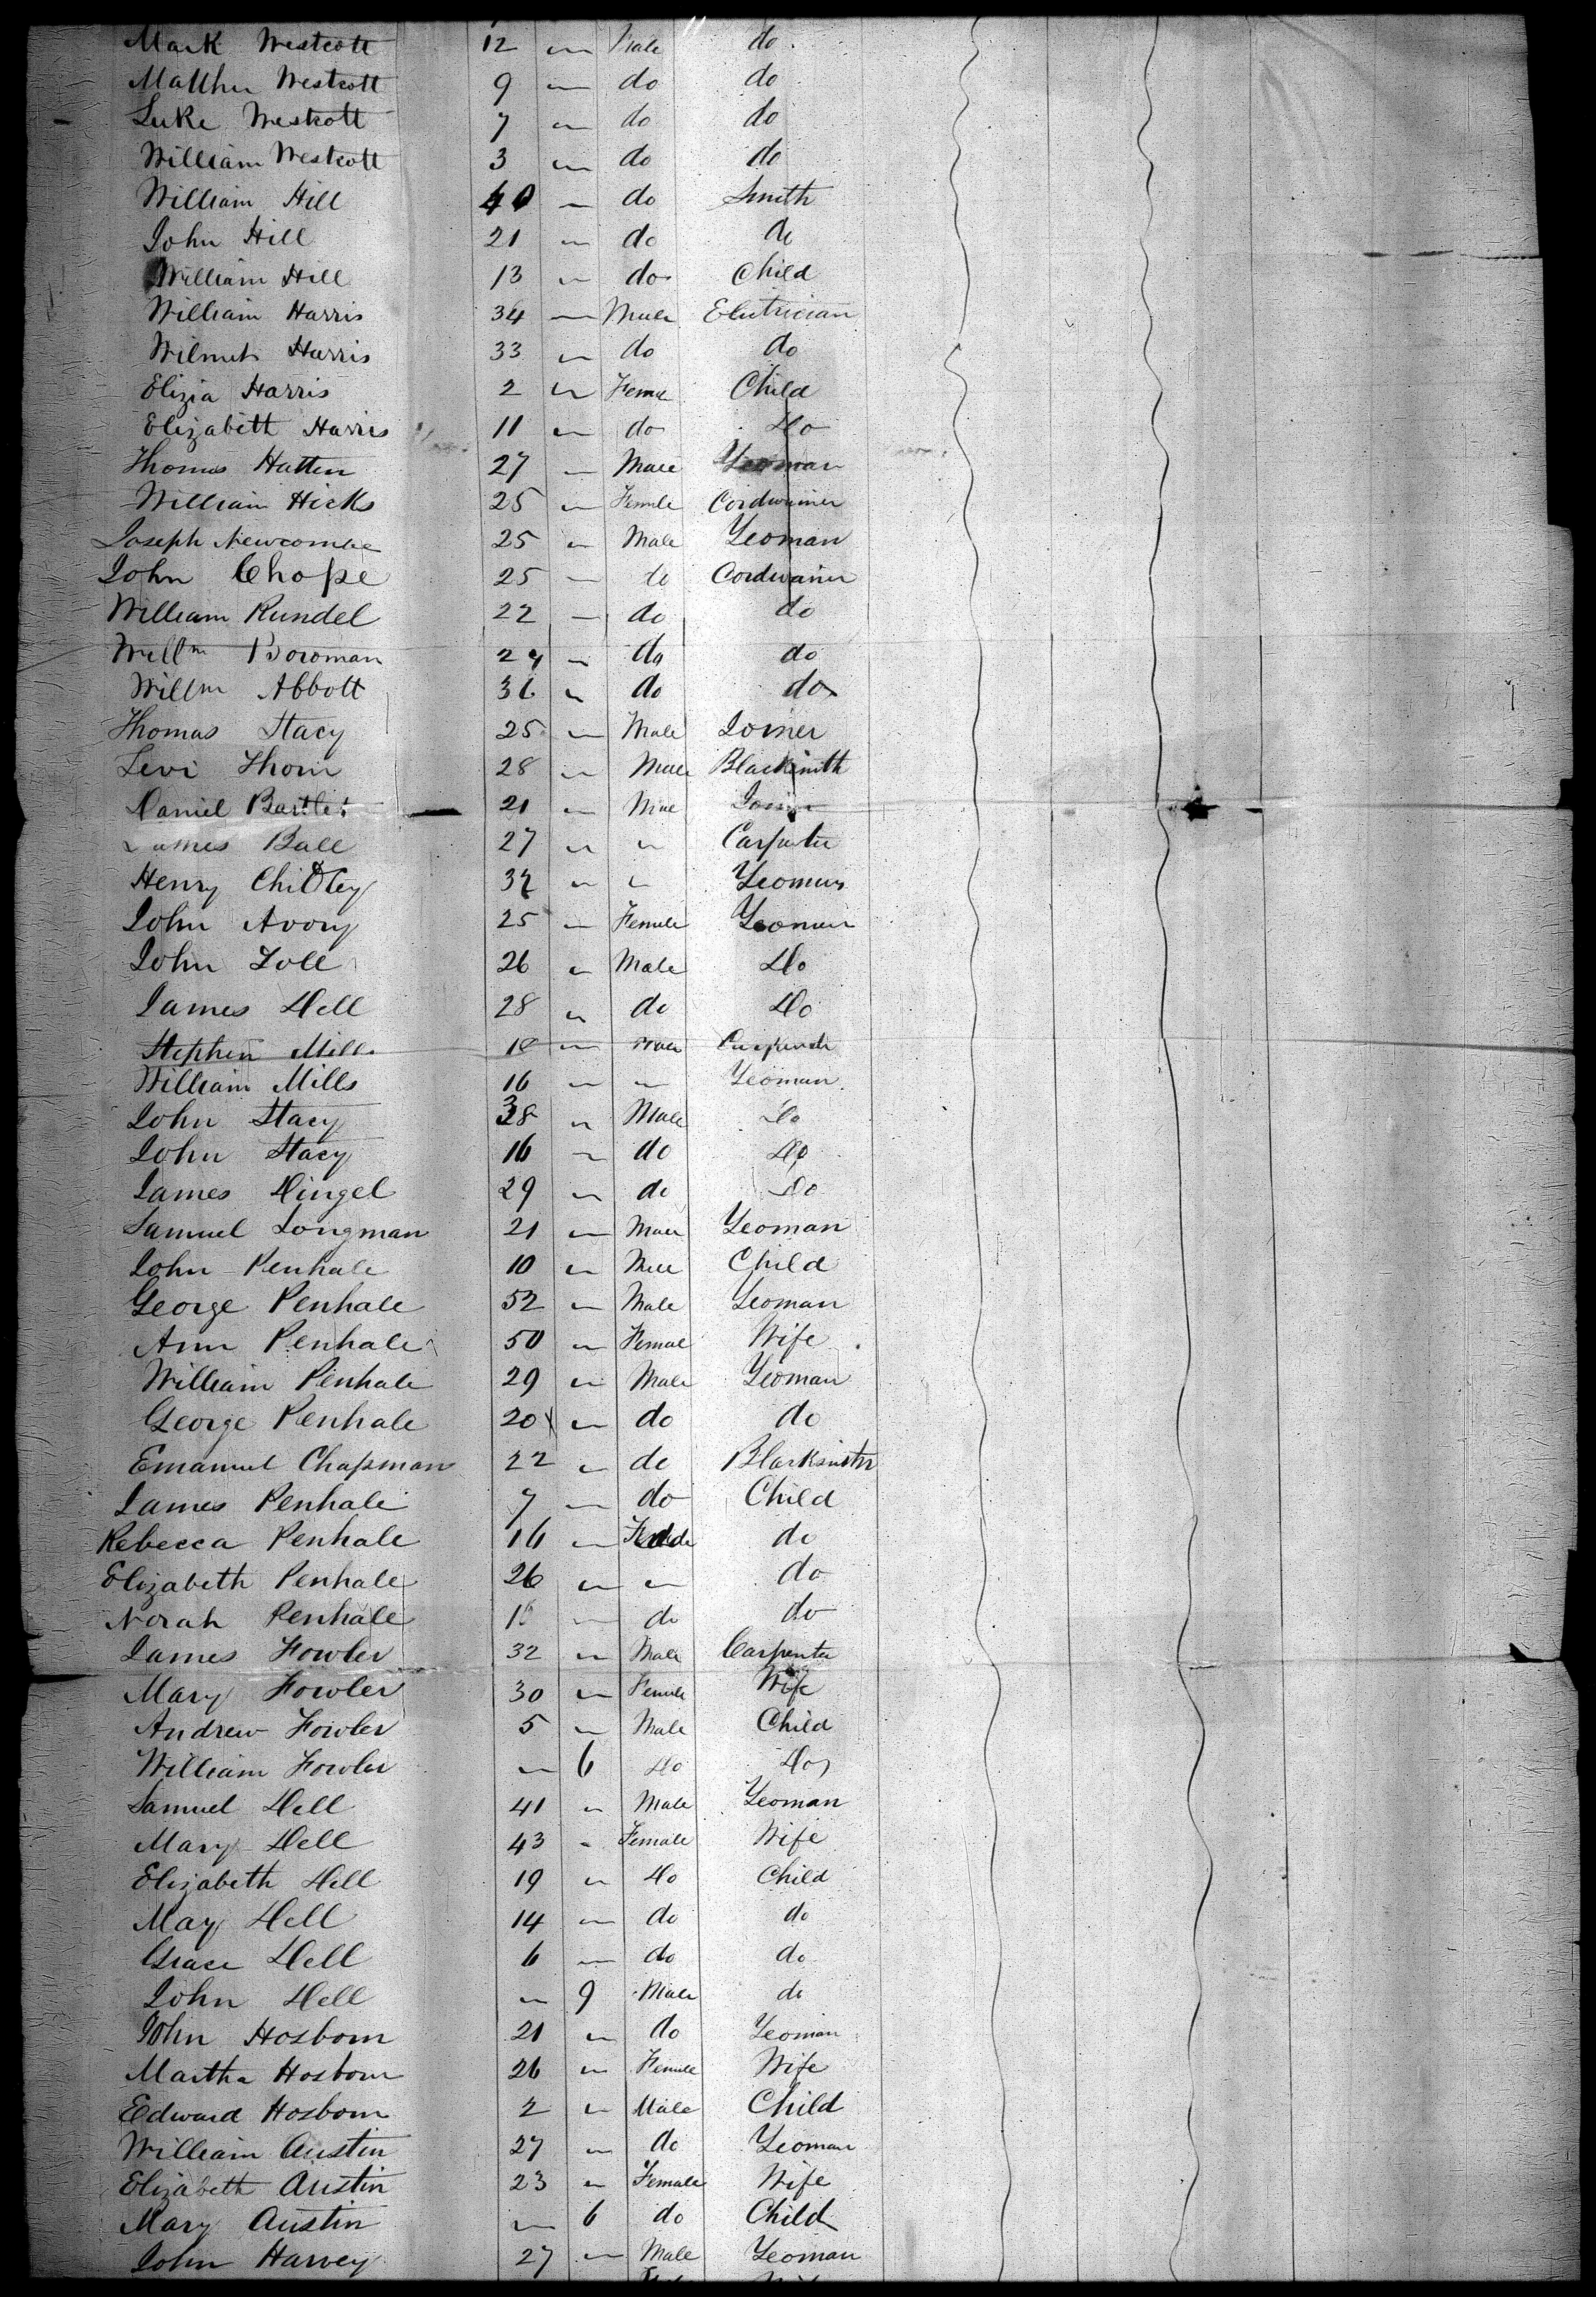 Mark Westcott 12 " Male do
Matthew Westcott 9 " do do
Luke Westcott 7 " do do
William Westcott 3 " do do
William Hill 40 " do Smith
John Hill 21 " do do
William Hill 13 " do Child
William Harris 34 " Male Electrician
Wilmet Harris 33 " do do
Elizia Harris 2 " Femae Child
Elizabeth Harris 11 " do Do
Thomas Hatten 27 " Male Yeoman
William Hicks 25 " Female Cordwainer
Joseph Newcombe 25 " Male Yeoman
John Chope 25 " do Cordwainer
William Rundel 22 " do do
Willm Bowman 24 " do do
Willm Abbott 36 " do do
Thomas Stacy 25 " Male Joiner
Levi Thorn 28 " Male Blacksmith
Daniel Bartlet 21 " Male Joiner
James Ball 27 " " Carpenter
Henry Chidley " " Yeoman
John Avory 25 " Female Yeoman
John Zoll 26 " Male Do
James Dell 28 " do Do
Stephen Mills 18 " Male Carpenter
William Mills 16 " " Yeoman
John Stacy 38 " Male Do
John Stacy 16 " do Do
James Dingel 29 " do Do
Samuel Longman 21 " Male Yeoman
John Penhale 10 " Male Child
George Penhale 52 " Male Yeoman
Ann Penhale 50 " Female Wife
William Penhale 29 " Male Yeoman
George Penhale 20 " do do
Emanuel Chapman 22 " do Blacksmith
James Penhale 7 " do Child
Rebecca Penhale 16 " do
Elizabeth Penhale 26 " " do
Norah Penhale " do do
James Fowler 32 " Male Carpenter
Mary Fowler 30 " Female Wife
Andrew Fowler 5 " Male Child
William Fowler " 6 Do Do
Samuel Dell 41 " Male Yeoman
Mary Dell 43 " Female Wife
Elizabeth Dell 19 " Do Child
May Dell 14 " do do
Grace Dell 6 " do do
John Dell " 9 Male do
John Hosborn 21 " do Yeoman
Martha Hosborn 26 " Female Wife
Edward Hosborn 2 " Male Child
William Austin 27 " do Yeoman
Elizabeth Austin 23 " Female Wife
Mary Austin " 6 do Child
John Harvey 27 " Male Yeoman